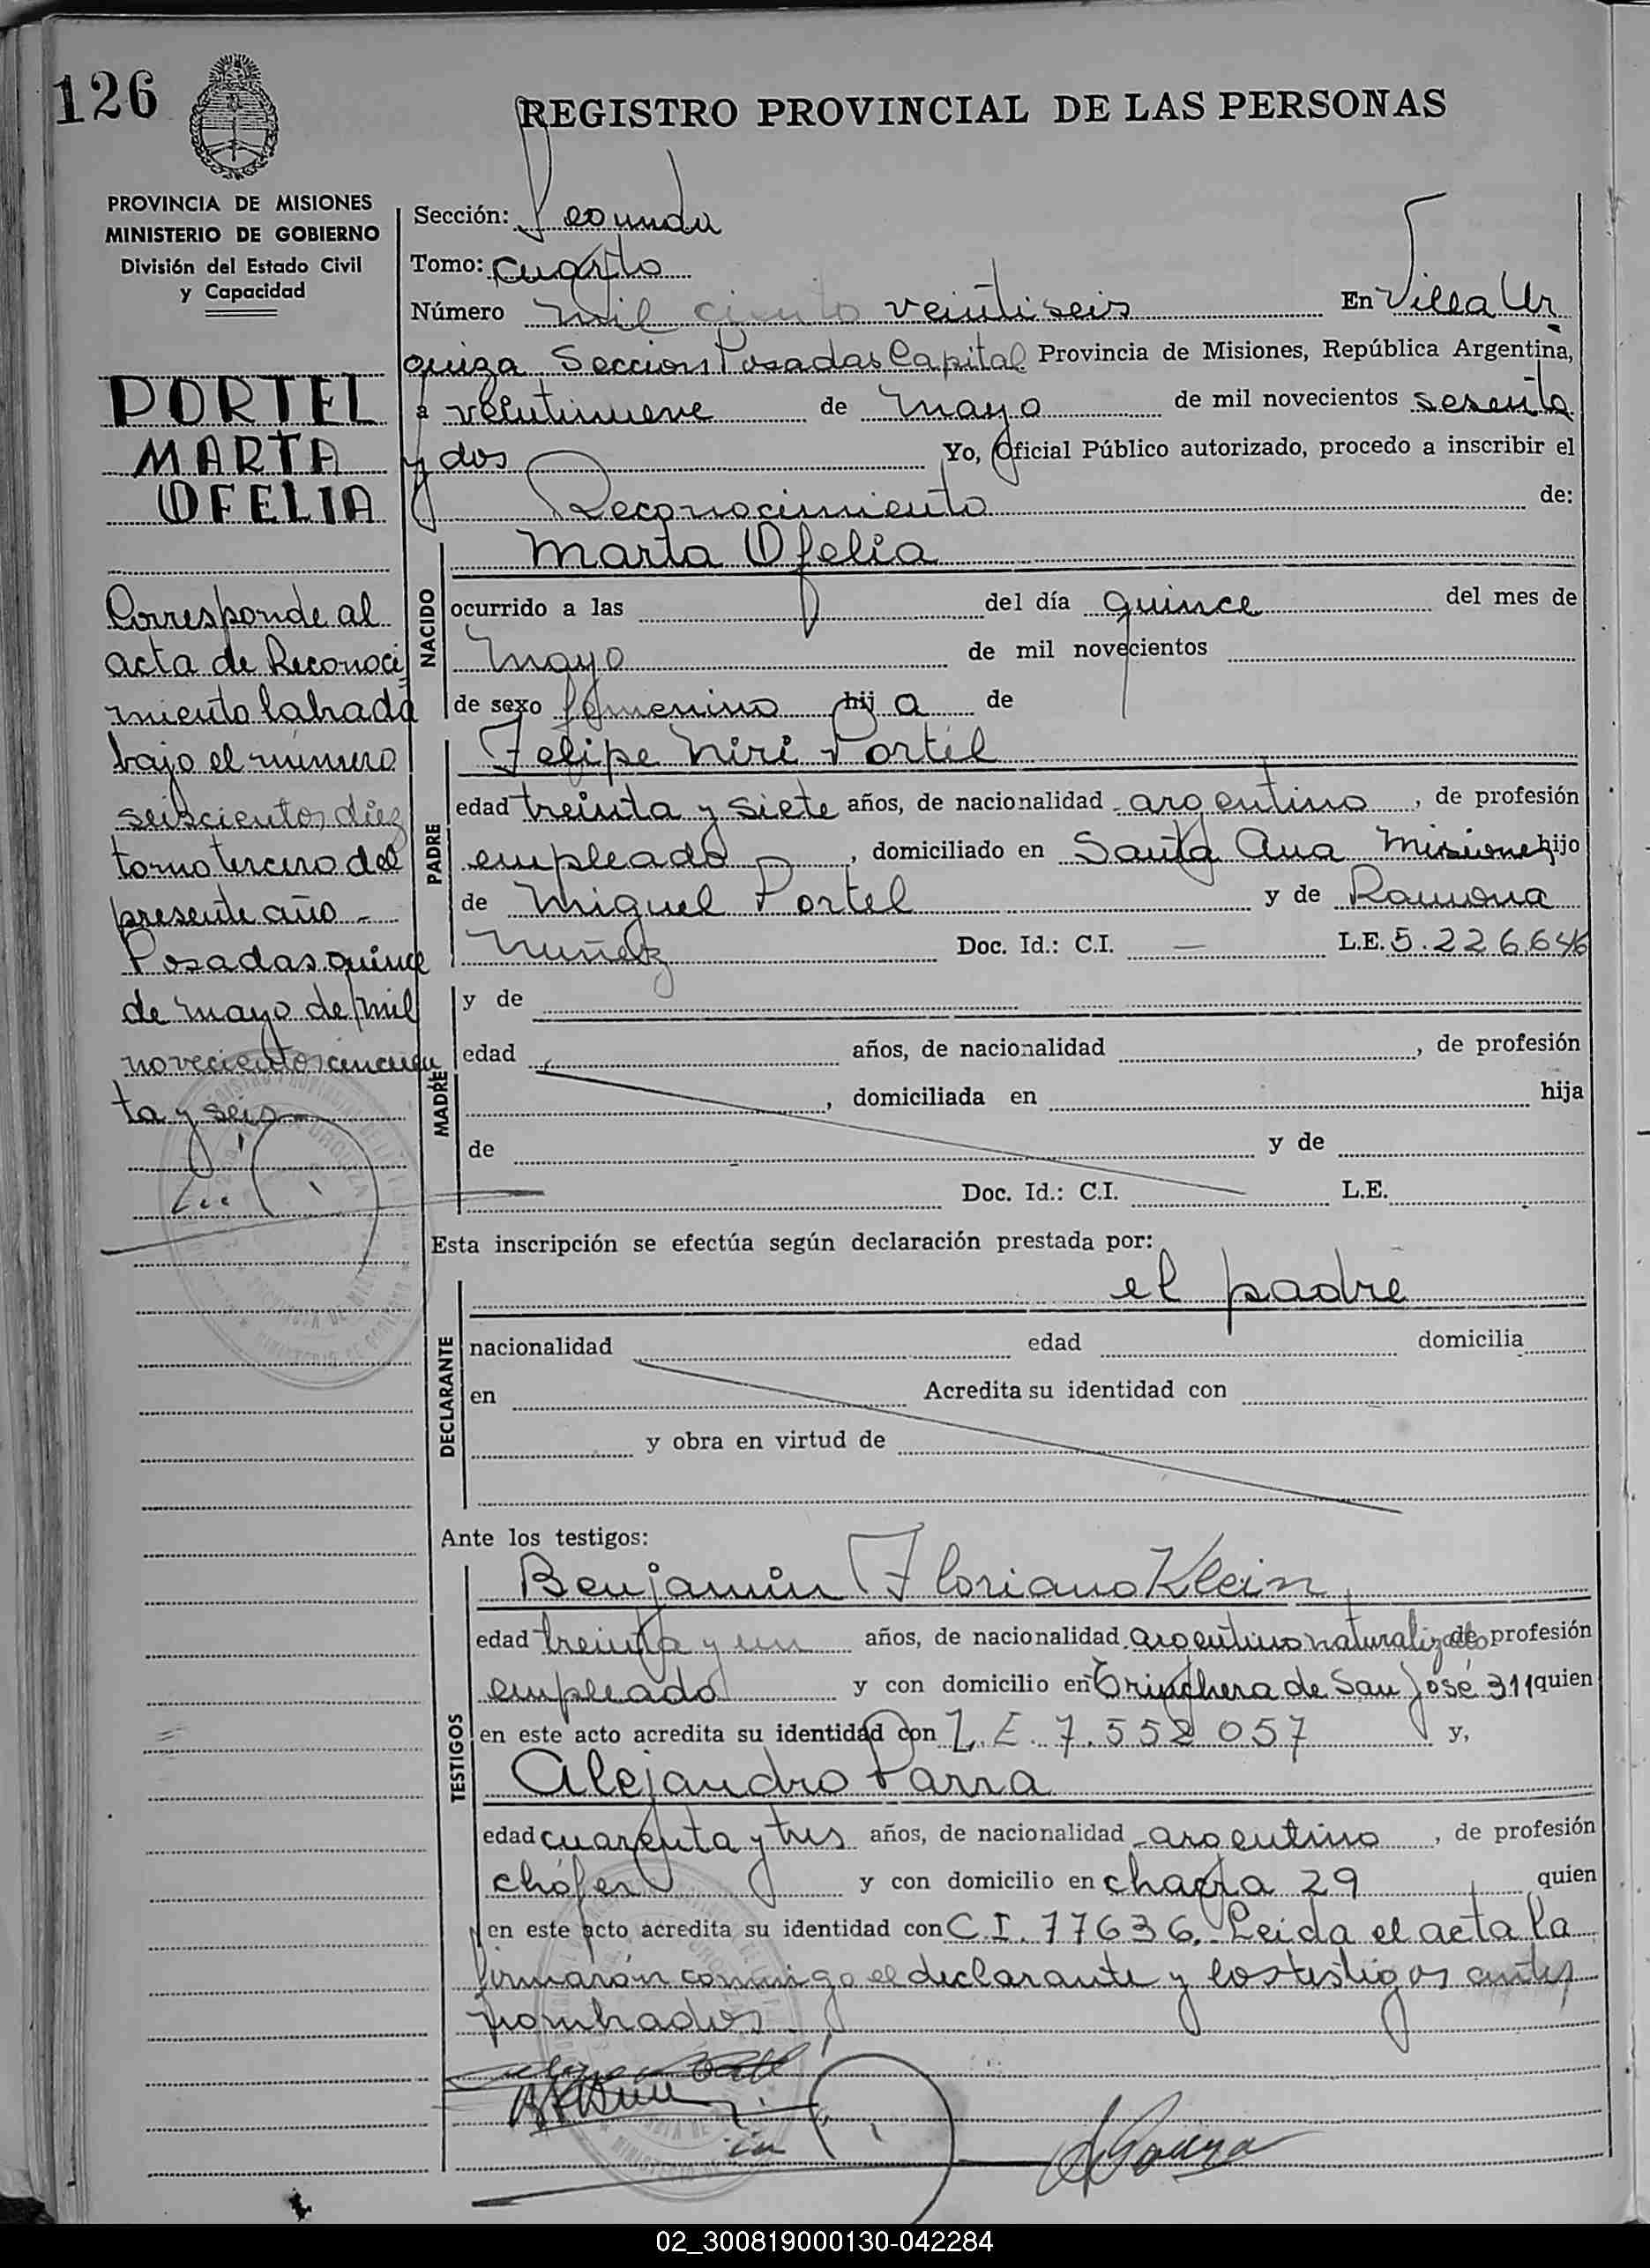 126
REGISTRO PROVINCIAL DE LAS PERSONAS
PROVINCIA DE MISIONES
MINISTERIO DE GOBIERNO
División del Estado Civil
y Capacidad
PORTEL
MARTA
OFELIA
Corresponde al
acta de Reconoci
miento labrada
bajo el número
seiscientos diez
tomo tercero del
presente año -
Posadas quince
de mayo de mil
novecientos cincuen
ta y seis
Sección: Segunda
Tomo: cuarto
Número mil ciento veintiseis En Villa Ur
quiza Seccion Posadas Capital Provincia de Misiones, República Argentina,
a veintinueve de mayo de mil novecientos sesenta
y dos Yo, Oficial Público autorizado, procedo a inscribir el
Reconocimiento de:
NACIDO
Marta Ofelia
ocurrido a las del día quince del mes de
mayo de mil novecientos
de sexo femenino hij a de
PADRE
Felipe Niri Portel
edad treinta y siete años, de nacionalidad argentino, de profesión
empleado, domiciliado en Santa Ana Misiones hijo
de Miguel Portel y de Ramona
Nuñez Doc. Id.: C.I. — L.E. 5.226.646
MADRE
y de
edad años, de nacionalidad , de profesión
, domiciliada en hija
de y de
Doc. Id.: C.I. L.E.
Esta inscripción se efectúa según declaración prestada por:
DECLARANTE
el padre
nacionalidad edad domicilia
en Acredita su identidad con
y obra en virtud de
Ante los testigos:
TESTIGOS
Benjamín Floriano Klein
edad treinta y un años, de nacionalidad argentino naturalizado de profesión
empleado y con domicilio en Trinchera de San José 311 quien
en este acto acredita su identidad con L.E. 7.552 057 y,
Alejandro Parra
edad cuarenta y tres años, de nacionalidad argentino, de profesión
chófer y con domicilio en chacra 29 quien
en este acto acredita su identidad con C.I. 77636. Leida el acta la
firmarón conmigo el declarante y los testigos antes
nombrados
02_300819000130-042284